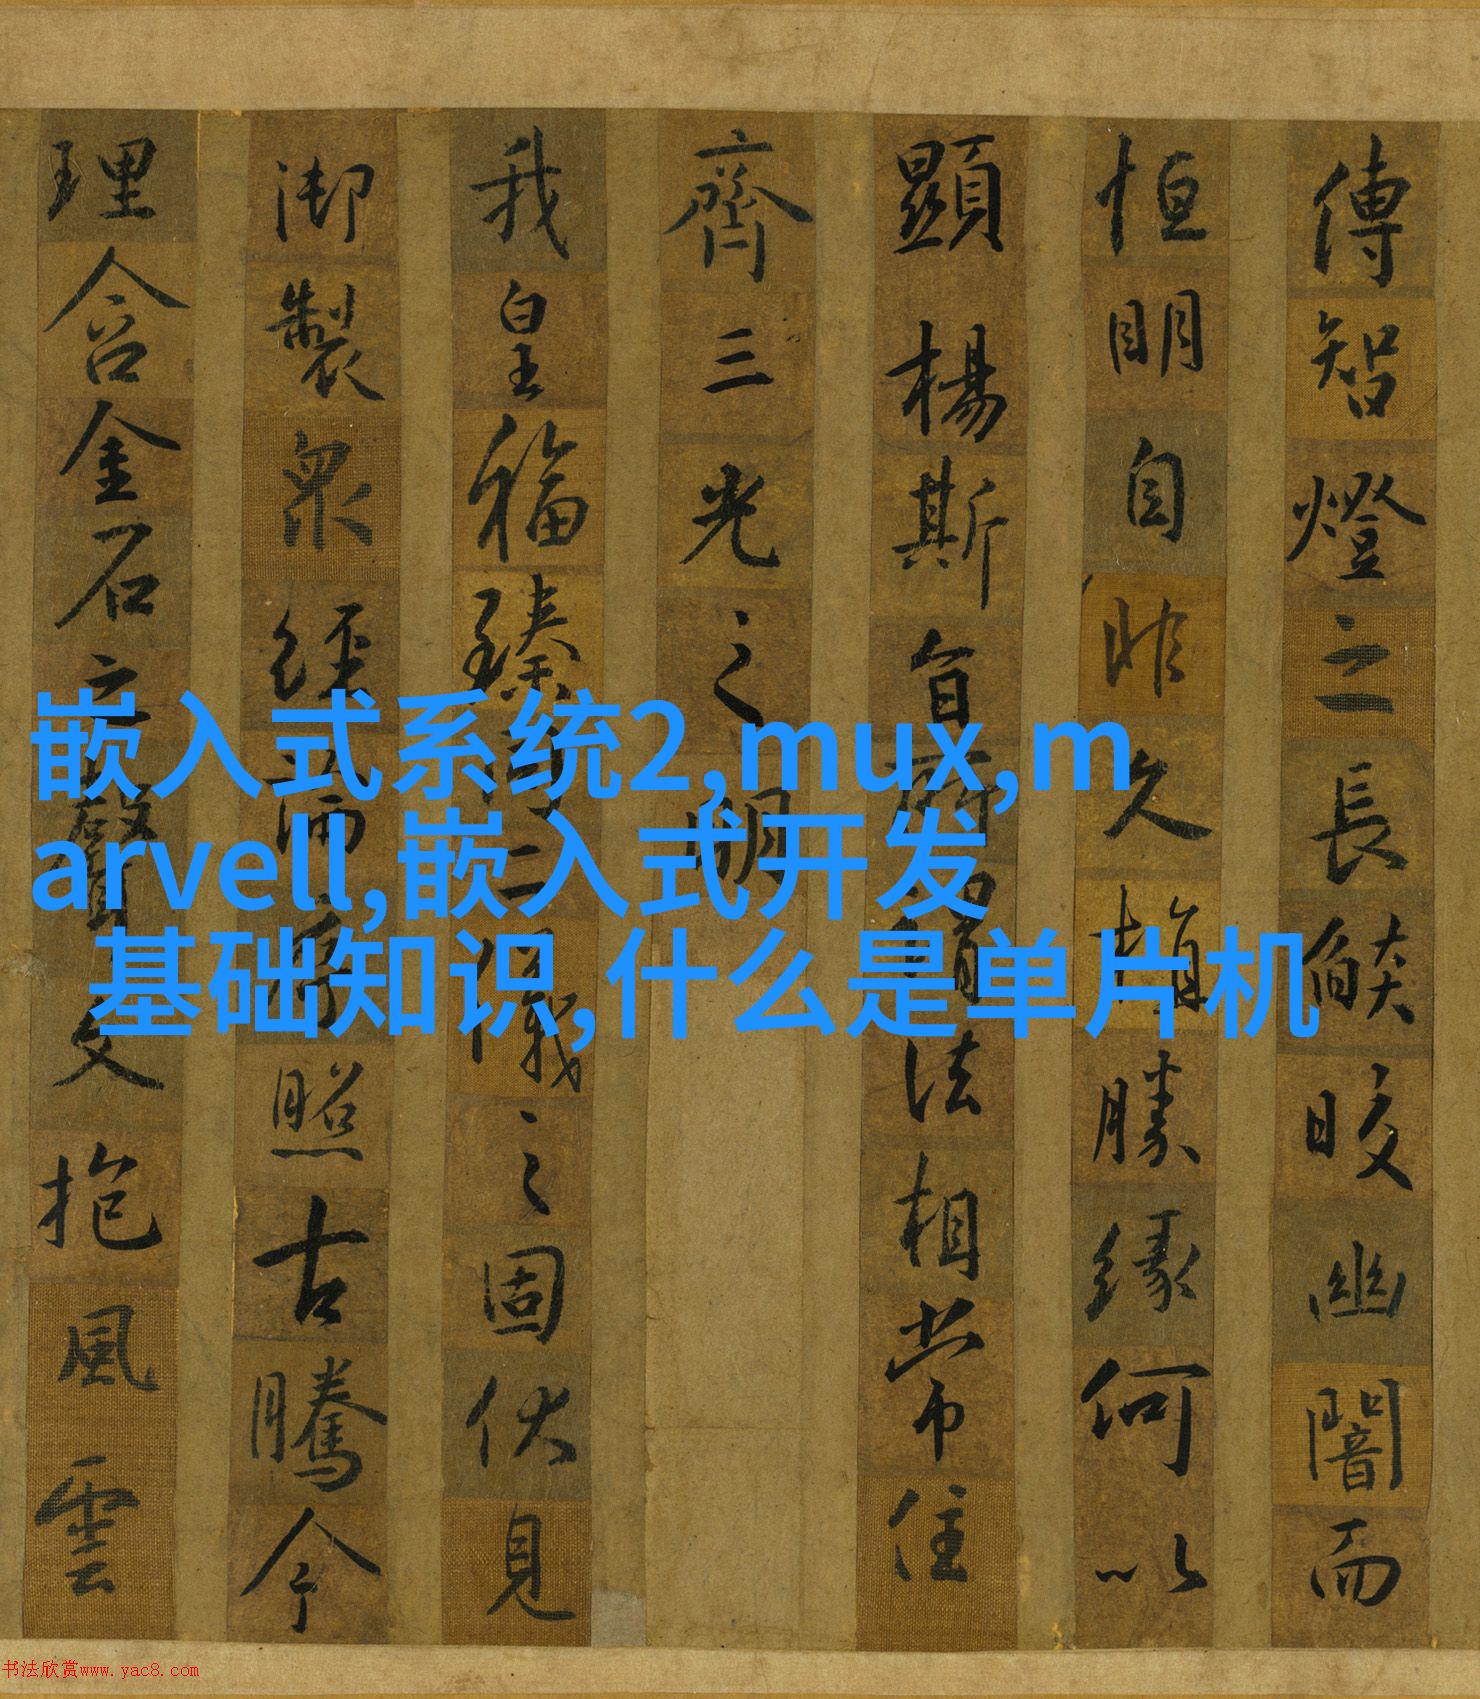 傳智燈之長焰皎幽闇而
恒明自非久植勝緣何以
顯楊斯旨所謂法相常住
齊三光之明
我皇福臻同二儀之固伏見
御製眾經論序照古騰今
理含金石之聲文抱風雲
嵌入式系统2,mux,m
arvell,嵌入式开发
基础知识,什么是单片机
书法欣赏www.yac8.com